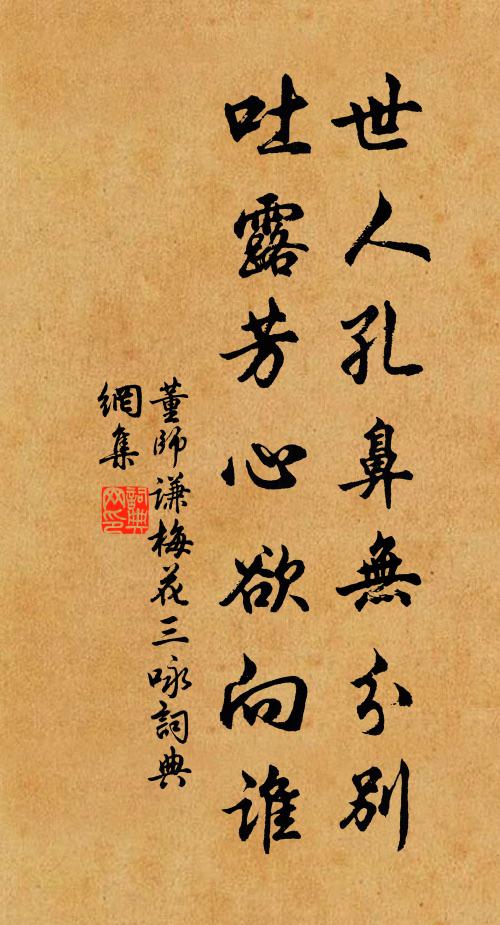 世人孔鼻無分別
吐露芳心欲向誰
董師謙梅花三咏詞典
網集
詞典
网印